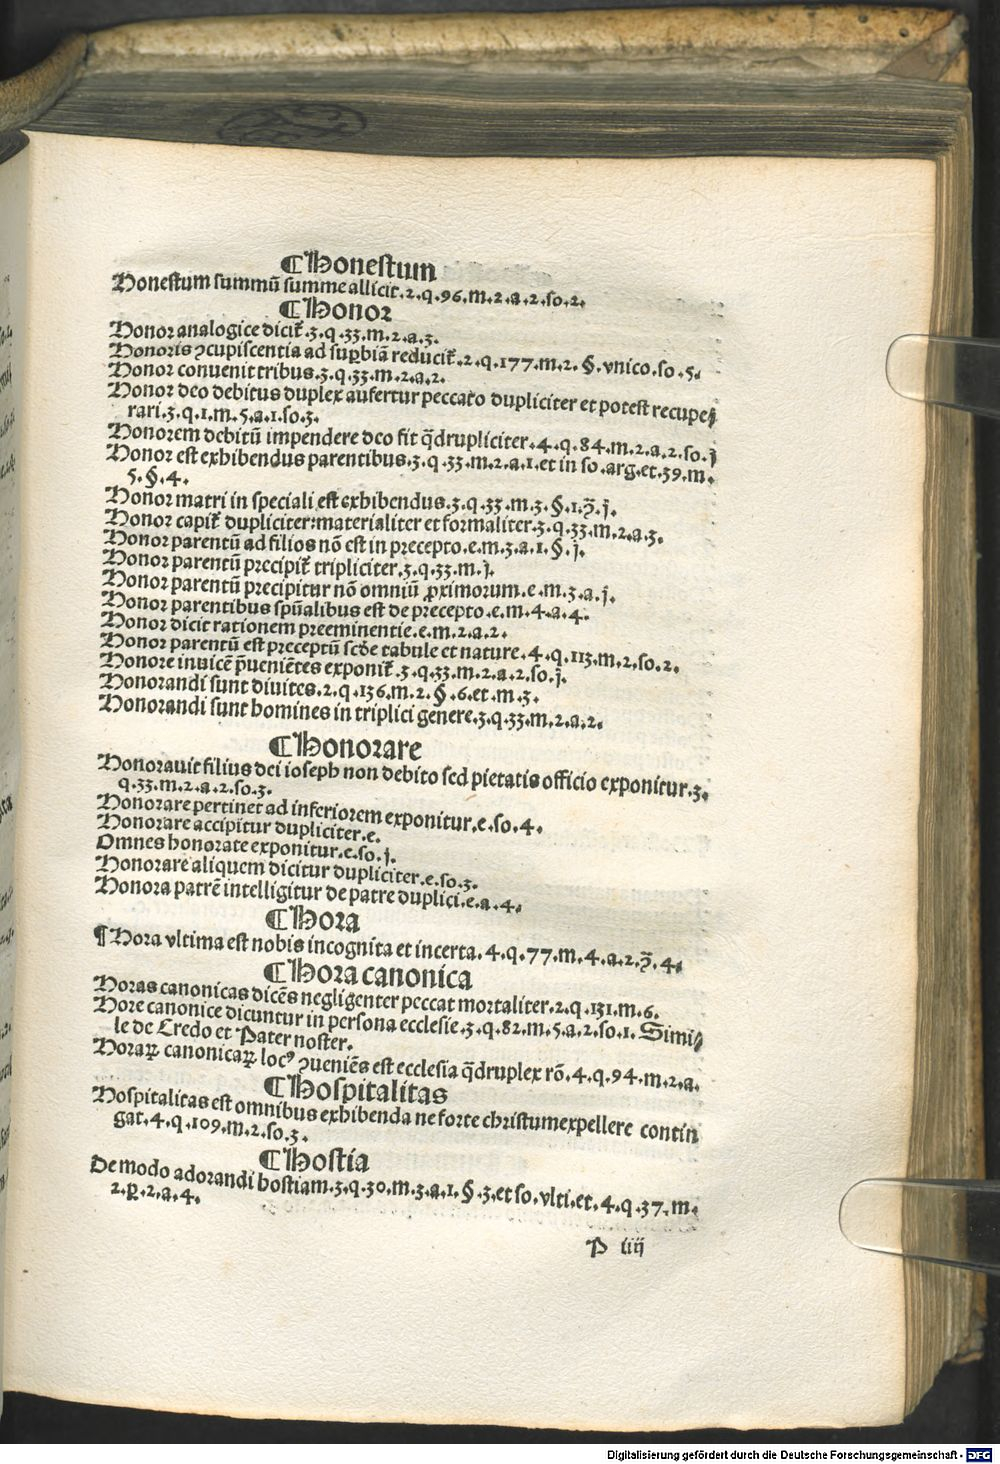 ¶Honestum
Honestum summū summe allicit.2.q.96.m.2.a.2.so.2.
¶Honor
Honor analogice dicit᷑.3.q.33.m.2.a.3.
Honoris ꝯcupiscentia ad suꝑbiā reducit᷑.2.q.177.m.2.§.vnico.so.5.
Honor conuenit tribus.3.q.33.m.2.a.2.
Honor deo debitus duplex aufertur peccato dupliciter et potest recupe⸗
rari.3.q.1.m.5.a.1.so.3.
Honorem debitū impendere deo fit q̄drupliciter.4.q.84.m.2.a.2.so.j
Honor est exhibendus parentibus.3.q.33.m.2.a.1.et in so.arg.et.39.m.
5.§.4.
Honor matri in speciali est exhibendus.3.q.33.m.3.§.1.ꝟ.j.
Honor capit᷑ dupliciter:materialiter et formaliter.3.q.33.m.2.a.3.
Honor parentū ad filios nō est in precepto.e.m.3.a.1.§.j.
Honor parentū precipit᷑ tripliciter.3.q.33.m.j.
Honor parentū precipitur nō omniū ꝓximorum.e.m.3.a.j.
Honor parentibus spūalibus est de precepto.e.m.4.a.4.
Honor dicit rationem preeminentie.e.m.2.a.2.
Honor parentū est preceptū scd̄e tabule et nature.4.q.113.m.2.so.2.
Honore inuicē p̄ueniētes exponit᷑.3.q.33.m.2.a.2.so.j.
Honorandi sunt diuites.2.q.136.m.2.§.6.et.m.3.
Honorandi sunt homines in triplici genere.3.q.33.m.2.a.2.
¶Honorare
Honorauit filius dei ioseph non debito sed pietatis officio exponitur.3.
q.33.m.2.a.2.so.3.
Honorare pertinet ad inferiorem exponitur.e.so.4.
Honorare accipitur dupliciter.e.
Omnes honorate exponitur.e.so.j.
Honorare aliquem dicitur dupliciter.e.so.3.
Honora patrē intelligitur de patre duplici.e.a.4.
¶Hora
¶Hora vltima est nobis incognita et incerta.4.q.77.m.4.a.2.ꝟ.4.
¶Hora canonica
Horas canonicas dicēs negligenter peccat mortaliter.2.q.131.m.6.
Hore canonice dicuntur in persona ecclesie.3.q.82.m.5.a.2.so.1.Simi⸗
le de Credo et Pater noster.
Horaꝝ canonicaꝝ locꝰ ꝯueniēs est ecclesia q̄druplex rō.4.q.94.m.2.a.
¶Hospitalitas
Hospitalitas est omnibus exhibenda ne forte christumexpellere contin
gat.4.q.109.m.2.so.3.
¶Hostia
De modo adorandi hostiam.3.q.30.m.3.a.1.§.3.et so.vlti.et.4.q.37.m.
2.ꝑ.2.a.4.
P iiij
Digitalisierung gefördert durch die Deutsche Forschungsgemeinschaft - DFG